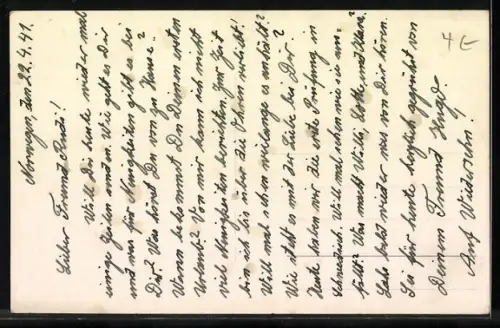 Norwegen, den 22.4.41.
Lieber Freund Rudi!
Will Dir heute wieder mal
einige Zeilen senden. Wie geht es Dir
und was für Neuigkeiten gibt es bei
Dir? Was hörst Du von zu Hause?
Wann bekommst Du Deinen ersten
Urlaub? Von mir kann ich nicht
viel Neuigkeiten berichten. Zur Zeit
bin ich bis über die Ohren
Will mal sehen wie lange es anhält?
Wie steht es mit der Liebe bei Dir?
Heute haben wir die erste Prüfung in
Will mal sehen wie sie aus-
fällt? Was macht Willi, und Hans?
Lass bald wieder was von Dir hören.
Sei für heute herzlich gegrüßt von
Deinem Freund
Auf Wiedersehn!
4 E